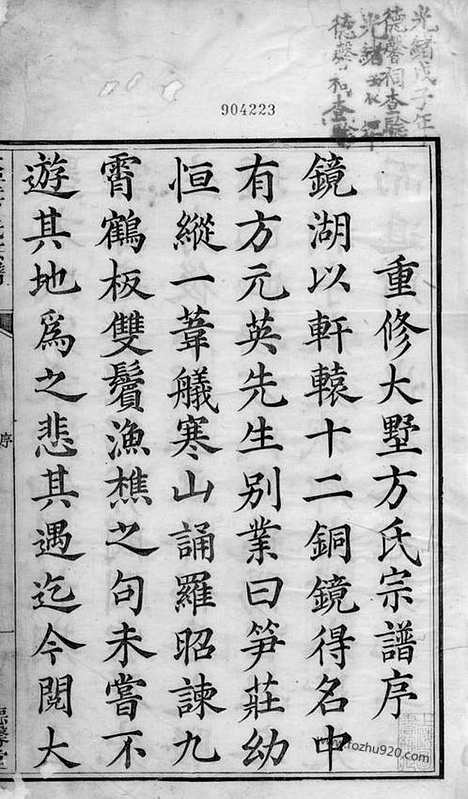 光緒戊子年
德馨祠查驗
904223
重修大墅方氏宗譜序
鏡湖以軒轅十二銅鏡得名中
有方元英先生別業曰笋莊幼
恒縱一葦艤寒山誦羅昭諫九
霄鶴板雙鬢漁樵之句未嘗不
遊其地爲之悲其遇迄今閱大
序
www.rozhu920.com